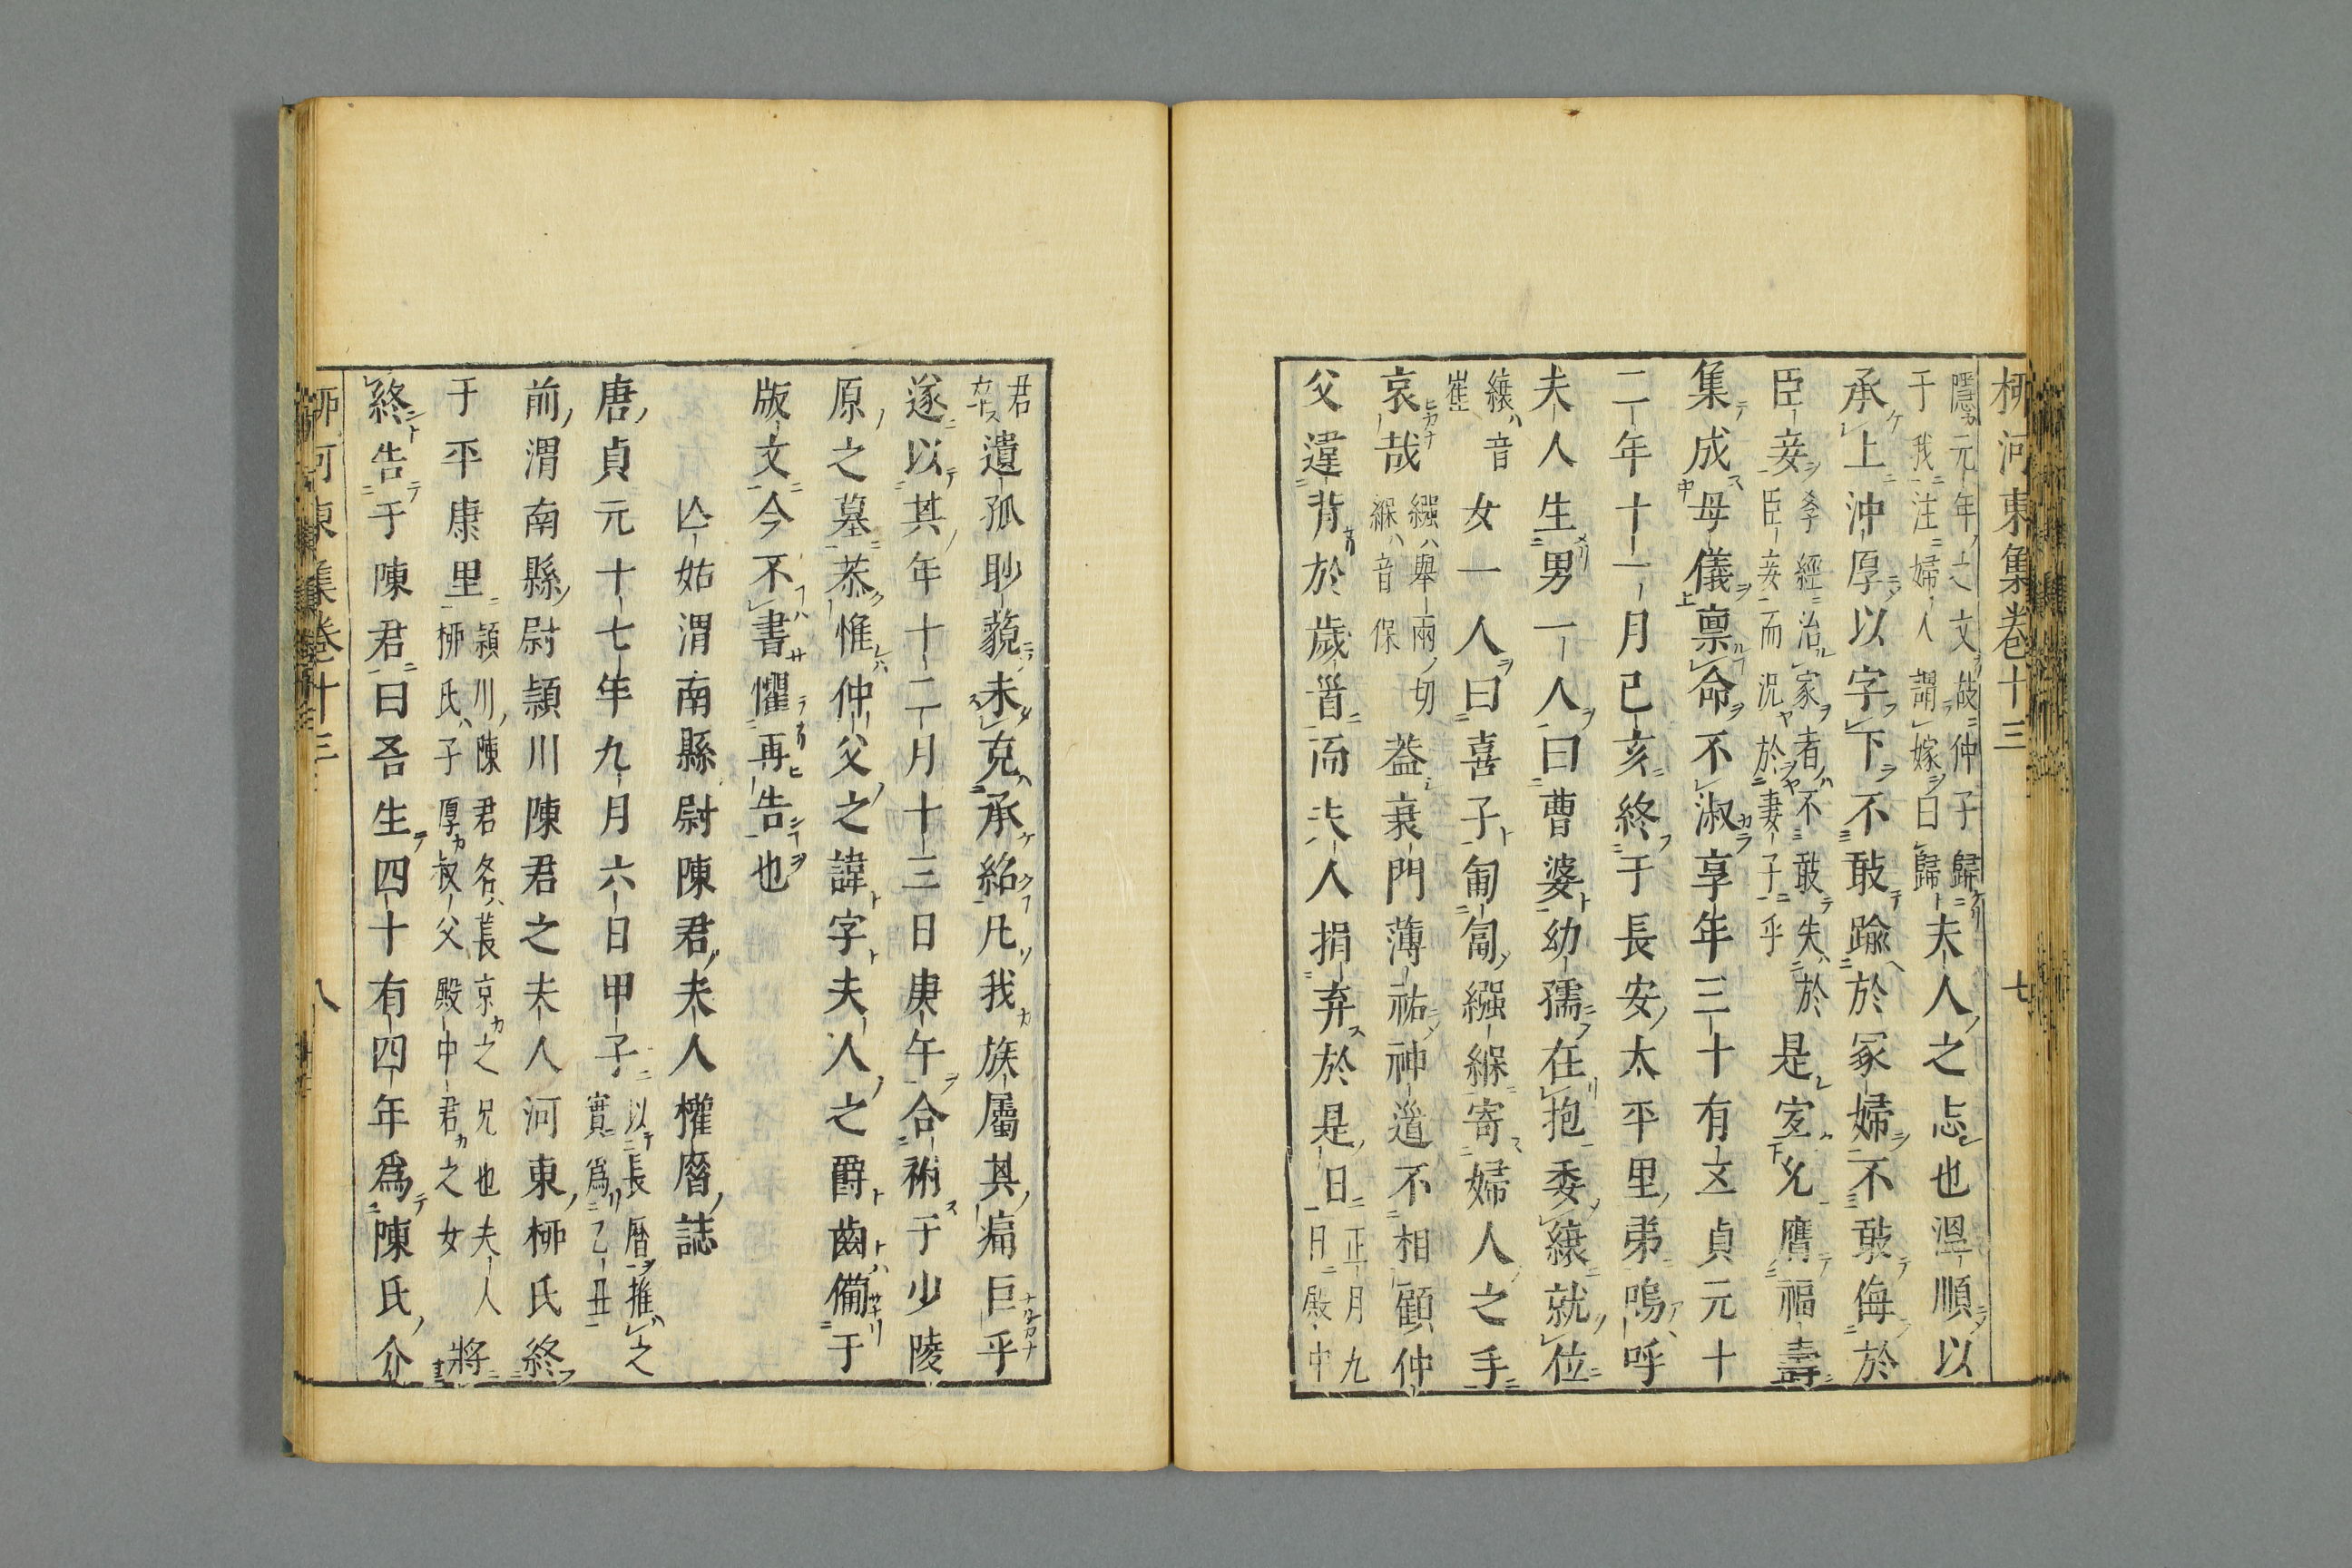 柳河東集卷十三　七
隱元年之文故仲子歸
于我注婦人謂嫁曰歸
夫人之志也溫順以
承上沖厚以字下不敢踰於冢婦不敢侮於
臣妾
孝經治家者不敢失於
臣妾而況於妻子乎
是宜允膺福壽
集成母儀禀命不淑享年三十有五貞元十
二年十一月己亥終于長安太平里弟嗚呼
夫人生男一人曰曹婆幼孺在抱委縗就位
縗音
崔
女一人曰喜子匍匐繈緥寄婦人之手
哀哉
繈舉兩切
緥音保
蓋衰門薄祐神道不相顧仲
父違背於歲首而夫人捐弃於是日
正月九
日殿中
君
卒
遺孤眇藐未克承紹凡我族屬其痛巨乎
遂以其年十二月十三日庚午合祔于少陵
原之墓恭惟仲父之諱字夫人之爵齒備于
版文今不書懼再告也
亾姑渭南縣尉陳君夫人權厝誌
唐貞元十七年九月六日甲子
以長曆推之
實爲乙丑
前渭南縣尉潁川陳君之夫人河東柳氏終
于平康里
潁川陳君名萇京之兄也夫人
柳氏子厚叔父殿中君之女
將
終告于陳君曰吾生四十有四年爲陳氏介
柳河東集卷十三　八